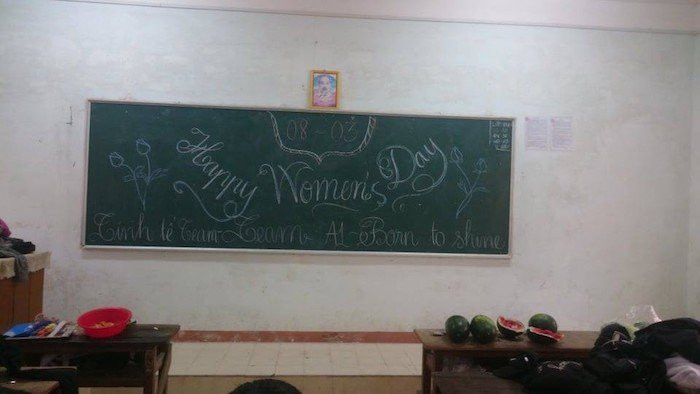 08 - 03
Happy Women's Day
Tinh tế Team - Team A1 - Born to shine